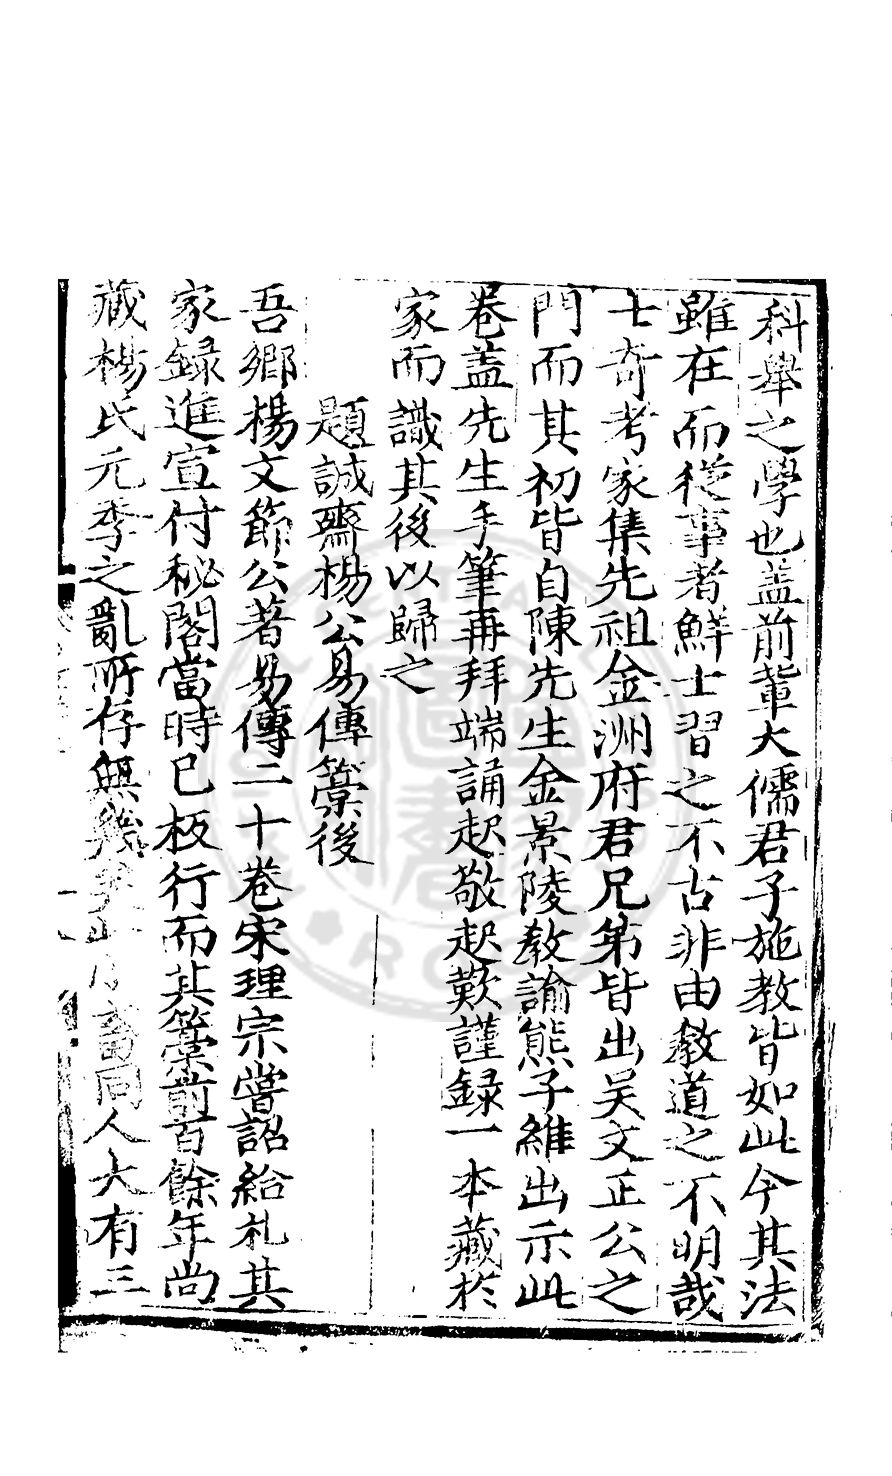 科舉之學也盖前輩大儒君子施教皆如此今其法
雖在而從事者鮮士習之不古非由教道之不明哉
士奇考家集先祖金洲府君兄弟皆出吴文正公之
門而其初皆自陳先生金景陵教諭熊子維出示此
卷盖先生手筆再拜端誦起敬起歎謹録一本藏於
家而識其後以歸之
題誠齋楊公易傳槀後
吾鄉楊文節公著易傳二十卷宋理宗嘗詔給札其
家録進宣付秘閣當時已板行而其槀前百餘年尚
藏楊氏元季之亂所存無幾 畜同人大有三